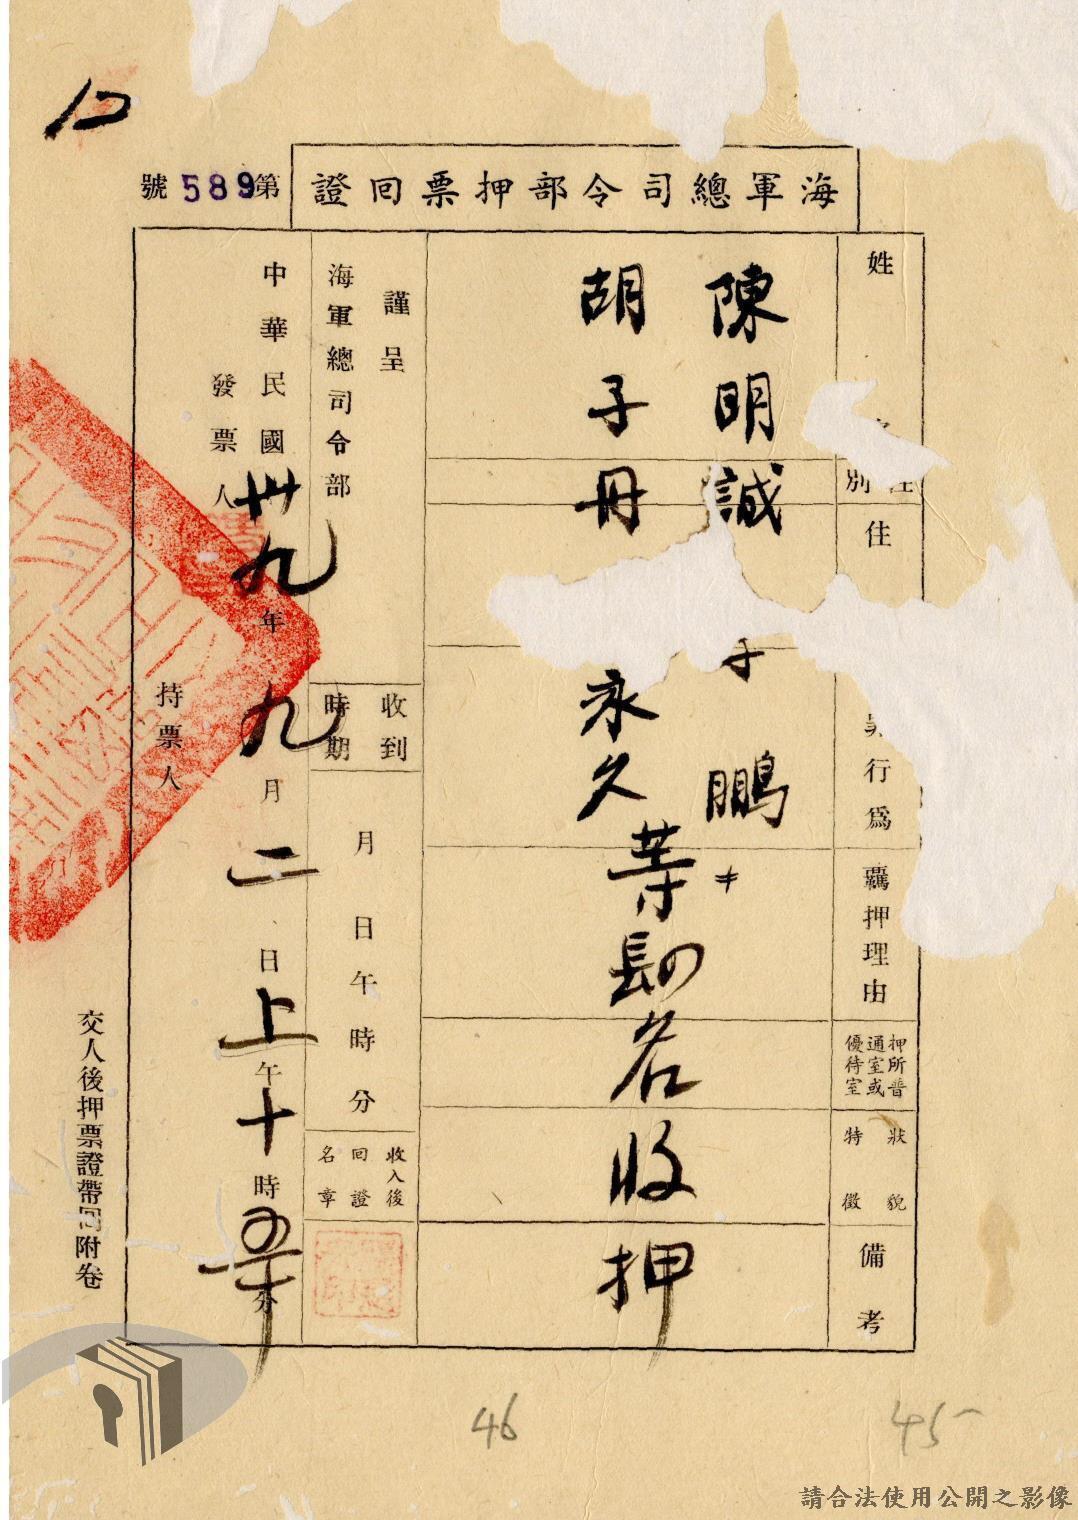 海軍總司令部押票回證
第589號
姓
別
住
行為
羈押理由
押所普通室或優待室
狀貌特徵
備考
陳明誠
鵬
胡子丹
永久等
名收押
謹呈
海軍總司令部
收到時期
月日午時分
收入後回證名章
中華民國卅九年九月二日上午十時分
發票人
持票人
交人後押票證帶回附卷
46
45
請合法使用公開之影像